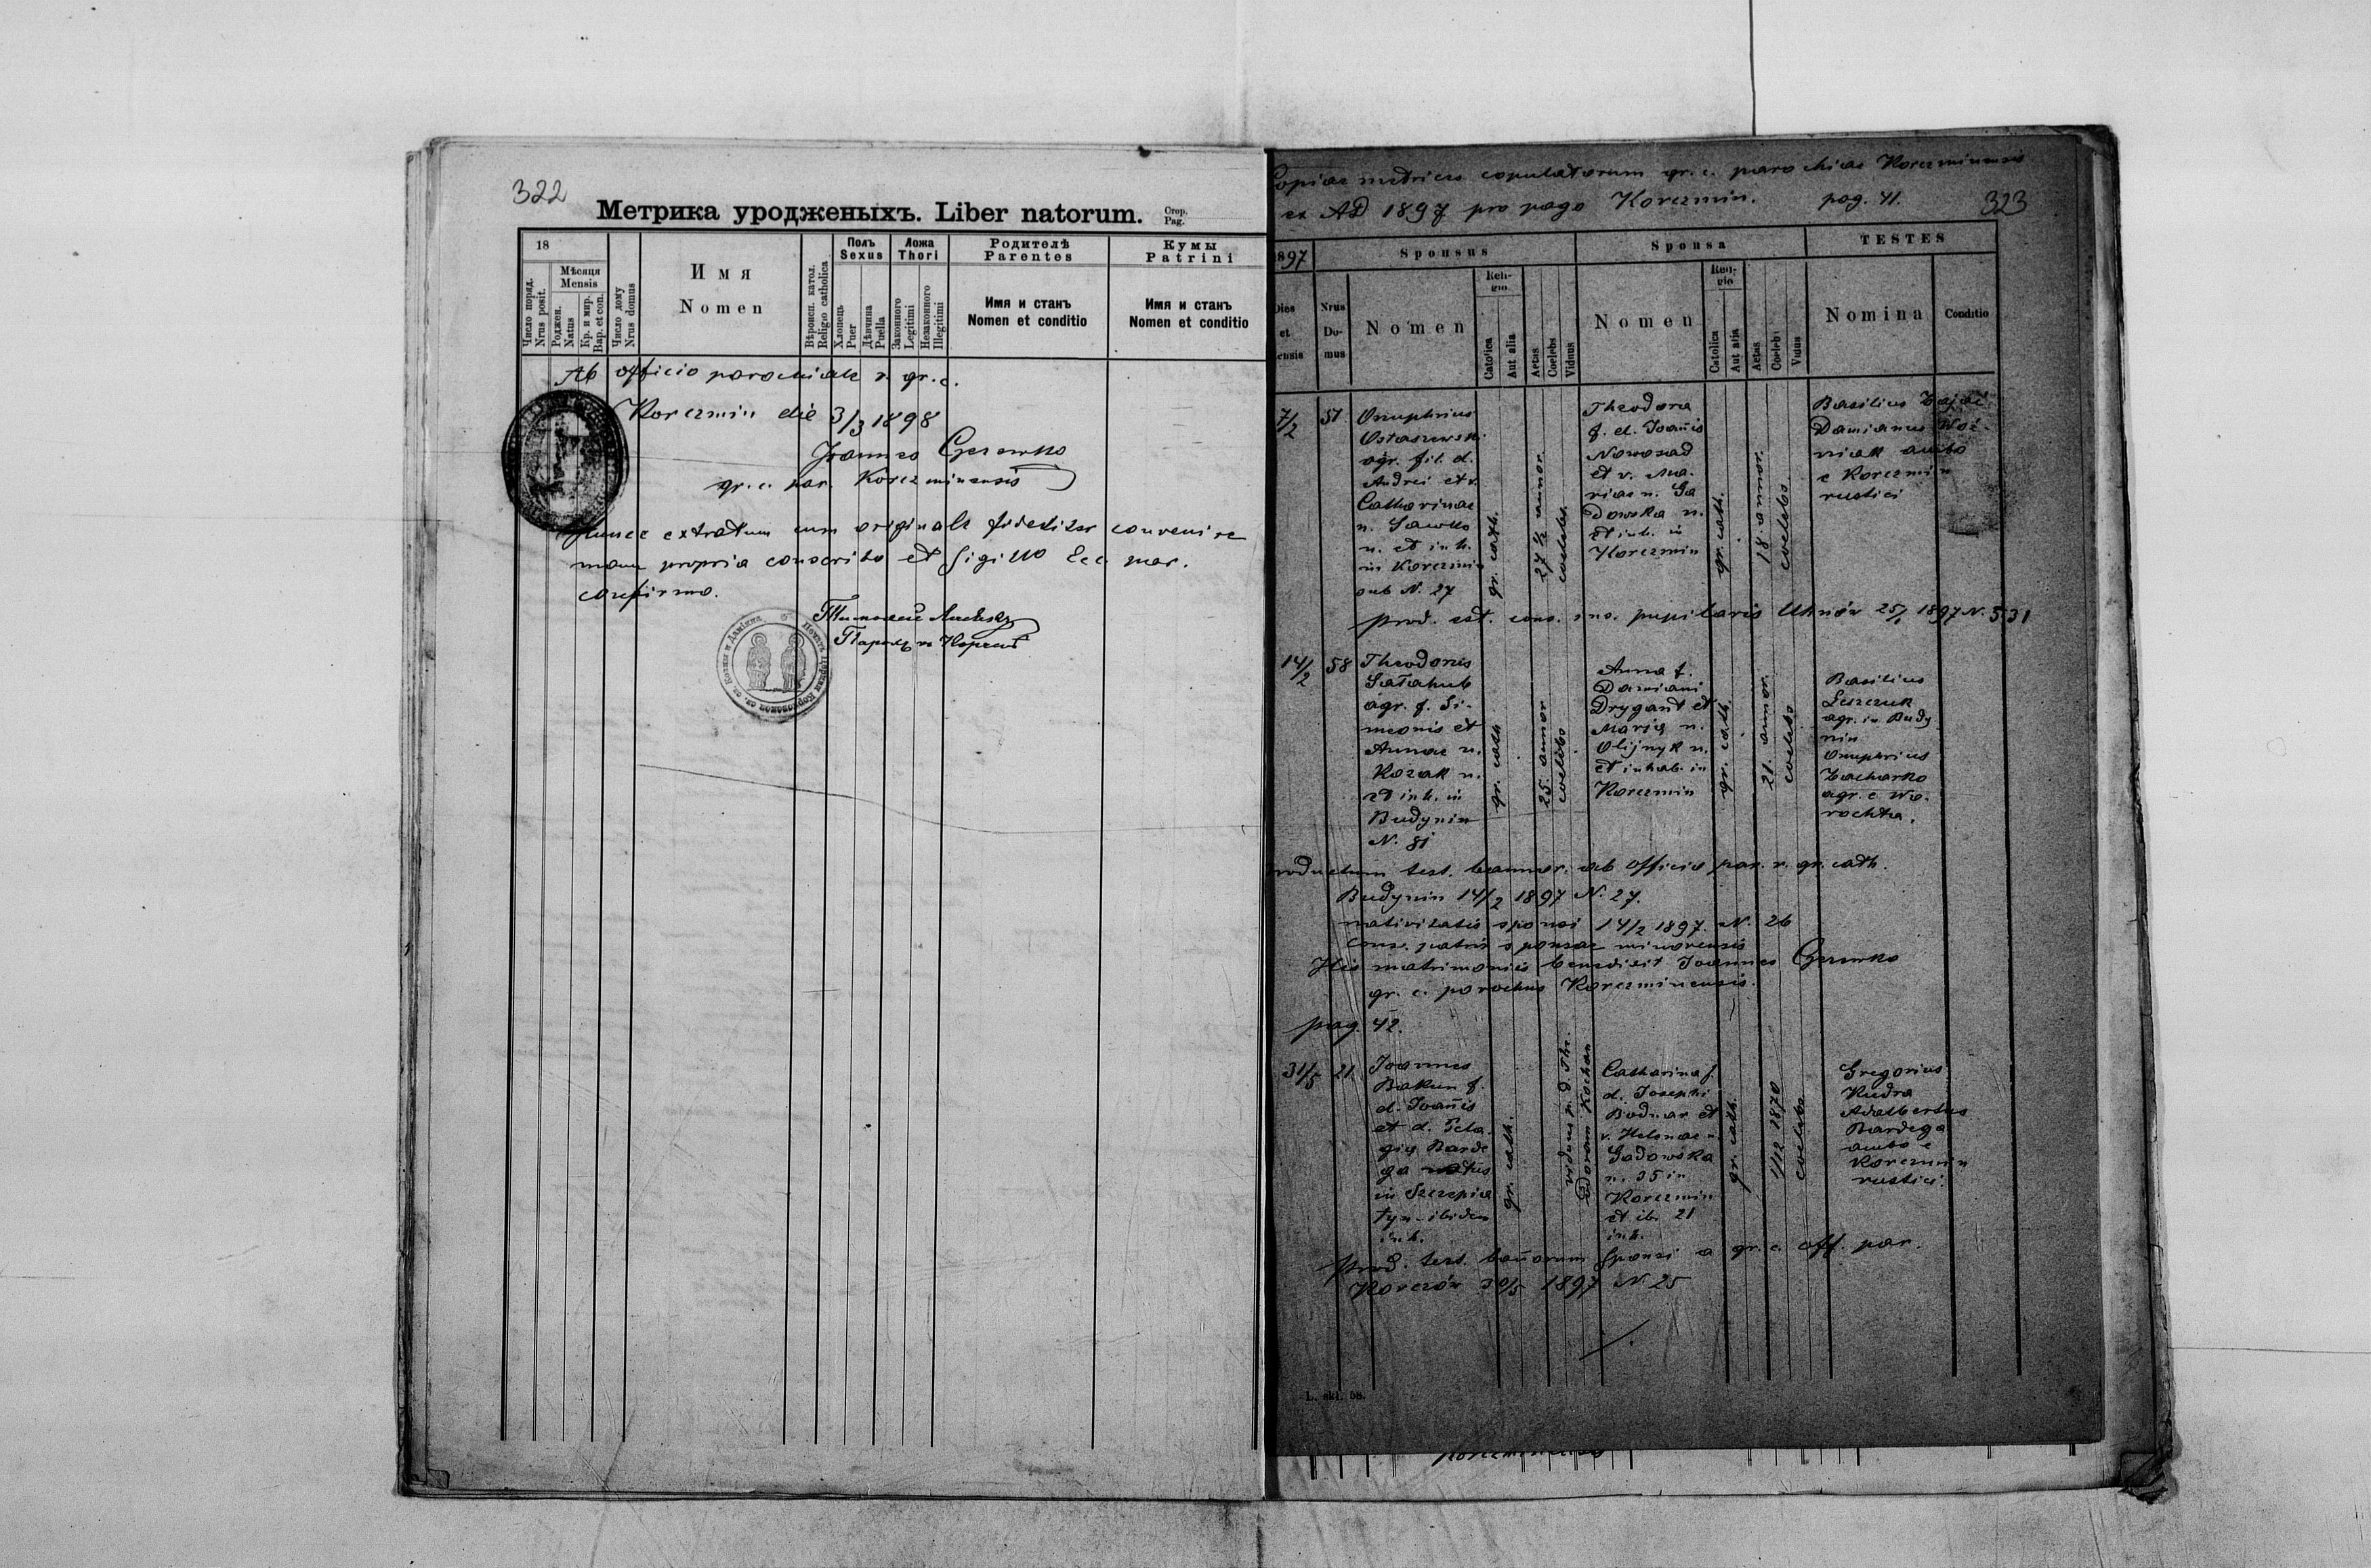 322
Метрика уродженыхъ. Liber natorum.
Стор.
Pag.
18
Число поряд.
Nrus posit.
Мѣсяця
Mensis
Рожден.
Natus
Кр. и мир.
Bap. et con.
Число дому
Nrus domus
Имя
Nomen
Вѣроисп. катол.
Religio catholica
Полъ
Sexus
Хлопець
Puer
Дѣвчина
Puella
Ложа
Thori
Законного
Legitimi
Незаконного
Illegitimi
Родителѣ
Parentes
Имя и станъ
Nomen et conditio
Кумы
Patrini
Имя и станъ
Nomen et conditio
Ab officio parochiale r. gr. c.
Korczmin die 3/3 1898
Joannes
gr. c. par. Korczminensis
Hunce extratum cum originale fideliter convenire
manu propria conscribo et Sigillo Ecc. par.
confirmo.
323
Copiae metrices copulatorum gr. c. parochiae Korczminensis
ex AD 1897 pro pago Korczmin. pag. 41.
1897
Dies
et
ensis
Nrus
Do-
mus
Sponsus
Nomen
Reli-
gio
Catolica
Aut alia
Aetas
Coelebs
Viduus
Sponsa
Nomen
Reli-
gio
Catolica
Aut alia
Aetas
Coelebs
Vidua
TESTES
Nomina
Conditio
7/2 51
Onuphrius
Ostaszewski
agr. fil. d.
Andrei et v.
Catharinae
n. Sawko
n. et inh.
in Korczmin
sub N. 27
gr. cath.
27 1/2 annor.
coelebs.
Theodora
f. d. Joañis
Nowosad
et v. Ma-
riae n. Sa
dowska n.
et inh. in
Korczmin
gr. cath.
18 annor.
coelebs
Basilius Zając
Damianus Woź-
niak ambo
e Korczmin
rustici
prod. est. cons. ino. pupilaris Uhnów 25/1 1897 N. 531
14/2 58
Theodorus
Sałahub
agr. f. Si-
meonis et
Annae n.
Kozak n.
et inh. in
Budynin
N. 81
gr. cath.
25. annor
coelebs
Anna f.
Damiani
Drygant et
Marię n.
Olijnyk n.
et inhab. in
Korczmin
gr. cath.
21. annor.
coelebs
Basilius
Leszczuk
agr. in Budy
nin
Onuphrius
Zacharko
agr. e Wo-
rochta.
roductum test. bannor. ab officio par. r. gr. cath.
Budynin 14/2 1897 N. 27.
nativitatis sponsi 14/2 1897. N. 26
Cons. patris sponsae minorensis
His matrimoniis benedixit Joannes
gr. c. parochus Korczminensis.
pag. 42.
31/5 21
Joannes
Bakun f.
d. Joañis
et d. Pela
gię Barde
ga natus
in Szczepia
tyn - ibidem
inh.
gr. cath.
viduus p. d. The-
odoram Kochan
Catharina f.
d. Josephi
Bodnar et
v. Helenae n.
Sadowska
n. 35 in
Korczmin
et ib. 21
inh.
gr. cath.
1/12 1870
coelebs
Gregorius
Kudra
Adalbertus
Bardega
ambo e
Korczmin
rustici.
prod. test. bañorum Sponsi a gr. c. off. par.
Korczów 30/5 1897 N 25
L. skl. 58.